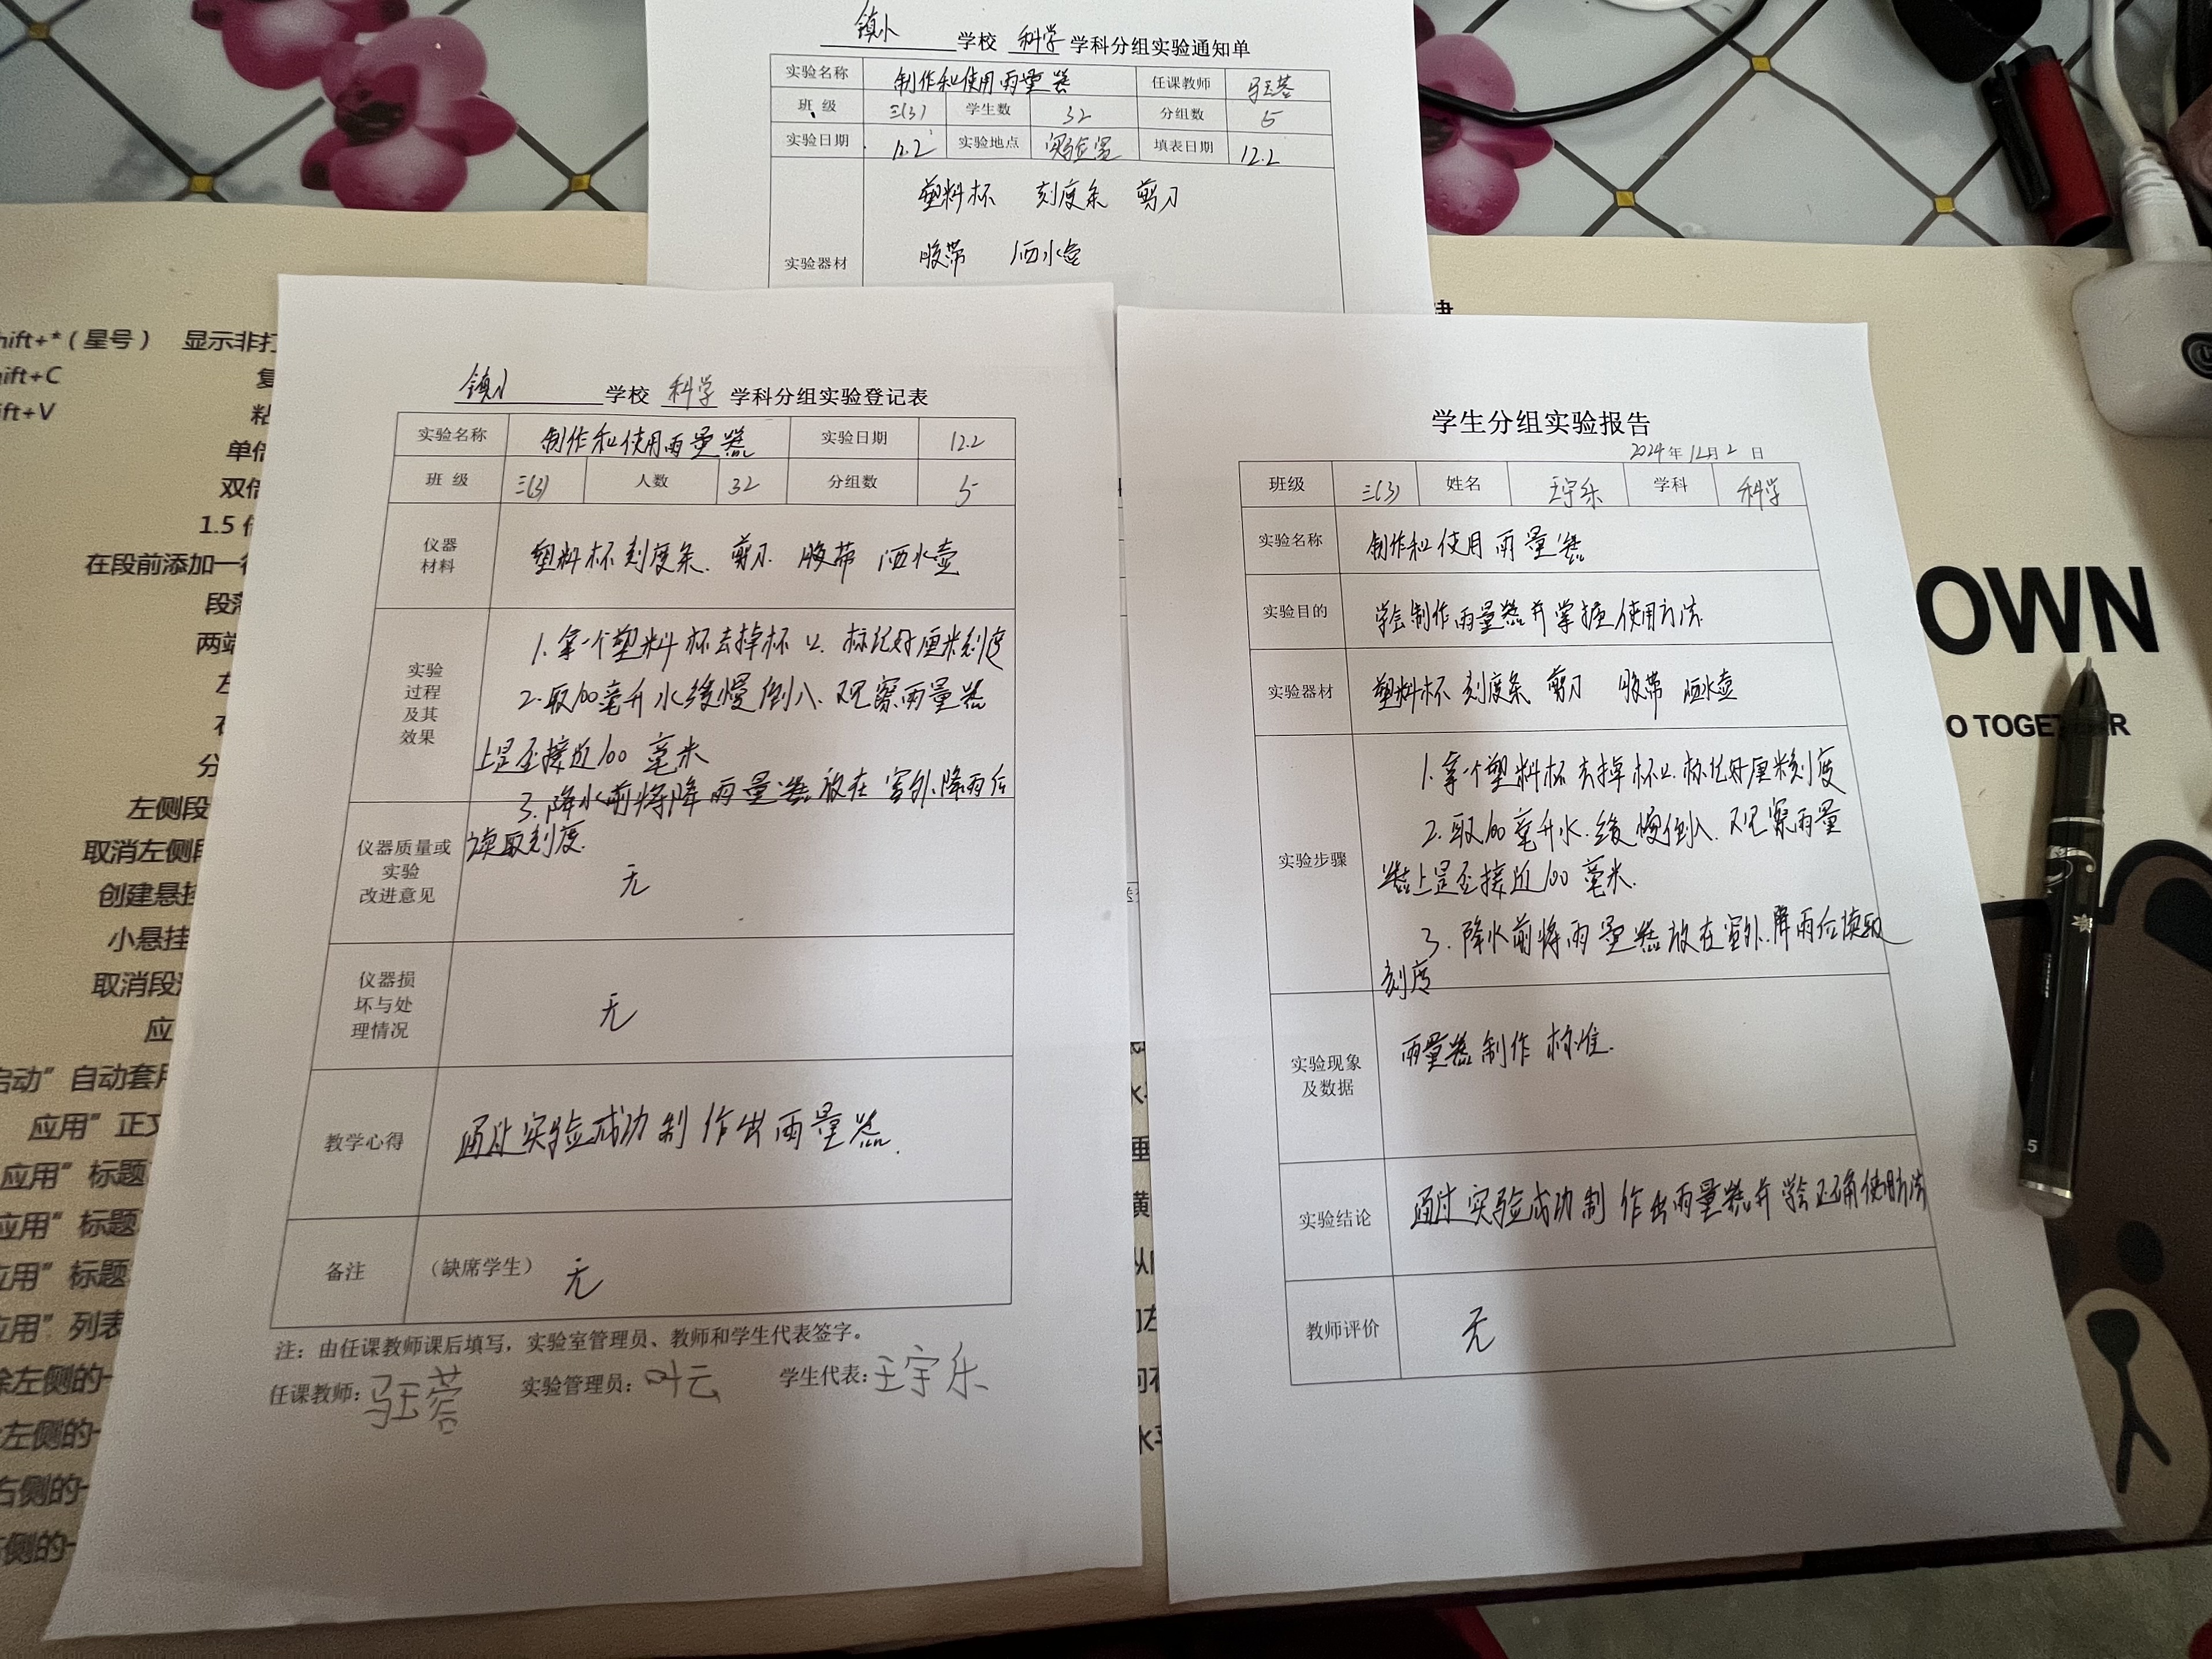 镇小 学校 科学 学科分组实验通知单
实验名称 制作和使用雨量器 任课教师 马玉蓉
班 级 三(3) 学生数 32 分组数 5
实验日期 12.2 实验地点 实验室 填表日期 12.2
实验器材
塑料杯 刻度条 剪刀
胶带 洒水壶
镇小 学校 科学 学科分组实验登记表
实验名称 制作和使用雨量器 实验日期 12.2
班 级 三(3) 人数 32 分组数 5
仪器
材料
塑料杯 刻度条. 剪刀. 胶带 洒水壶
实验
过程
及其
效果
1. 拿一个塑料杯去掉杯口. 标记好厘米刻度
2. 取100毫升水缓慢倒入. 观察雨量器
上是否接近100毫米
3. 降水前将降雨量器放在室外.降雨后
读取刻度.
仪器质量或
实验
改进意见
无
仪器损
坏与处
理情况
无
教学心得 通过实验成功制作出雨量器.
备注 (缺席学生) 无
注：由任课教师课后填写，实验室管理员、教师和学生代表签字。
任课教师: 马玉蓉 实验管理员: 叶云 学生代表: 王宇乐
学生分组实验报告
2024 年 12 月 2 日
班级 三(3) 姓名 王宇乐 学科 科学
实验名称 制作和使用雨量器
实验目的 学会制作雨量器并掌握使用方法.
实验器材 塑料杯 刻度条 剪刀 胶带 洒水壶
实验步骤
1. 拿一个塑料杯去掉杯口. 标记好厘米刻度
2. 取100毫升水.缓慢倒入. 观察雨量
器上是否接近100毫米.
3. 降水前将雨量器放在室外.降雨后读取
刻度
实验现象
及数据
雨量器制作标准.
实验结论 通过实验成功制作出雨量器并学会正确使用方法
教师评价 无
hift+*(星号) 显示非打
hift+C 复
ift+V 粘
单倍
双倍
1.5 倍
在段前添加一
段落
两端
左侧段
取消左侧
创建悬挂
小悬挂
取消段
应
启动”自动套用
应用”正文
应用”标题
应用”标题
应用”标题
应用”列表
除左侧的一
左侧的一
右侧的一
侧的一
OWN
O TOGETHER